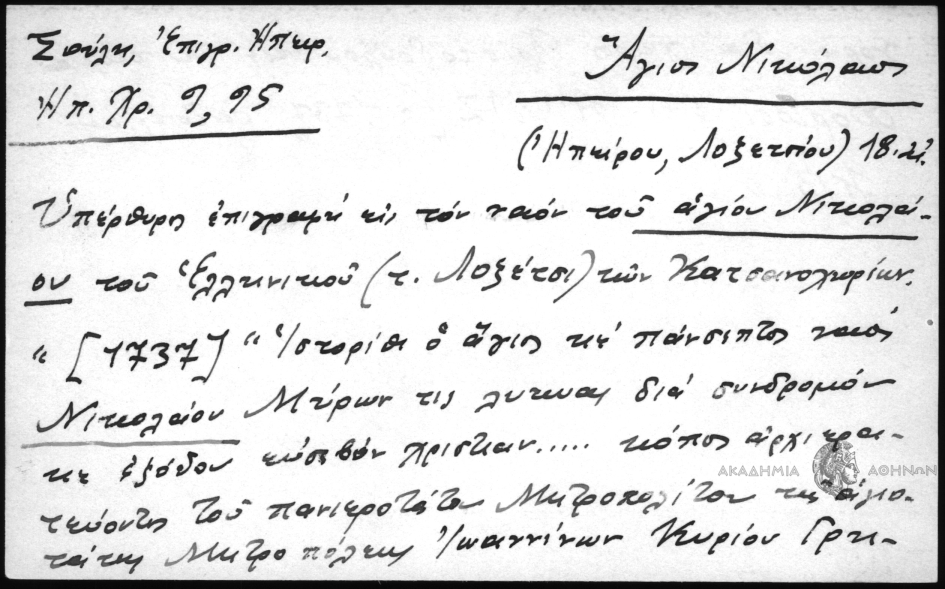 Σούλη, Ἐπιγρ. Ἠπειρ.
Ἠπ. Χρ. 9, 95
Ἅγιος Νικόλαος
(Ἠπείρου, Λοξετσίου) 18.
Ὑπέρθυρος ἐπιγραφή εἰς τόν ναόν τοῦ ἁγίου Νικολά-
ου τοῦ Ἑλληνικοῦ (τ. Λοξέτσι) τῶν Κατσανοχωρίων.
“ [1737] “ Ἱστορίθι ὁ ἅγιος κέ πάνσεπτος ναός
Νικολαίου Μύρων τις λυκιας διά συνδρομόν
κε ἐξόδον εὐσεβόν χριστιαν..... κόπος ἀρχιερα-
τεύοντος τοῦ πανιεροτάτου Μητροπολίτου τῆς ἁγιο-
τάτης Μητροπόλεως Ἰωαννίνων Κυρίου Γρη-
ΑΚΑΔΗΜΙΑ ΑΘΗΝΩΝ